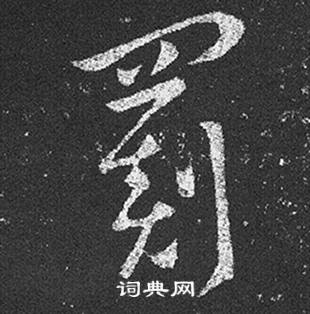 罰
词典网